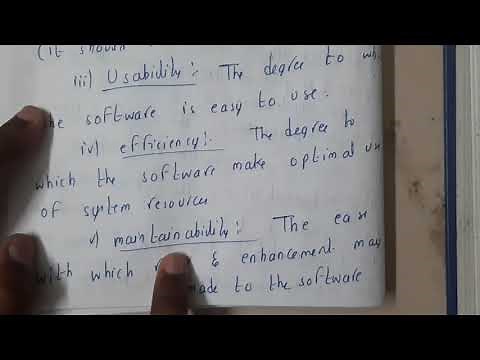 (it shoul
iii) Usability :- The degree to wh
the software is easy to use.
iv) efficiency :- The degree to
which the software make optimal us
of system resources
v) maintainability :- The ease
with which & enhancement may
made to the software